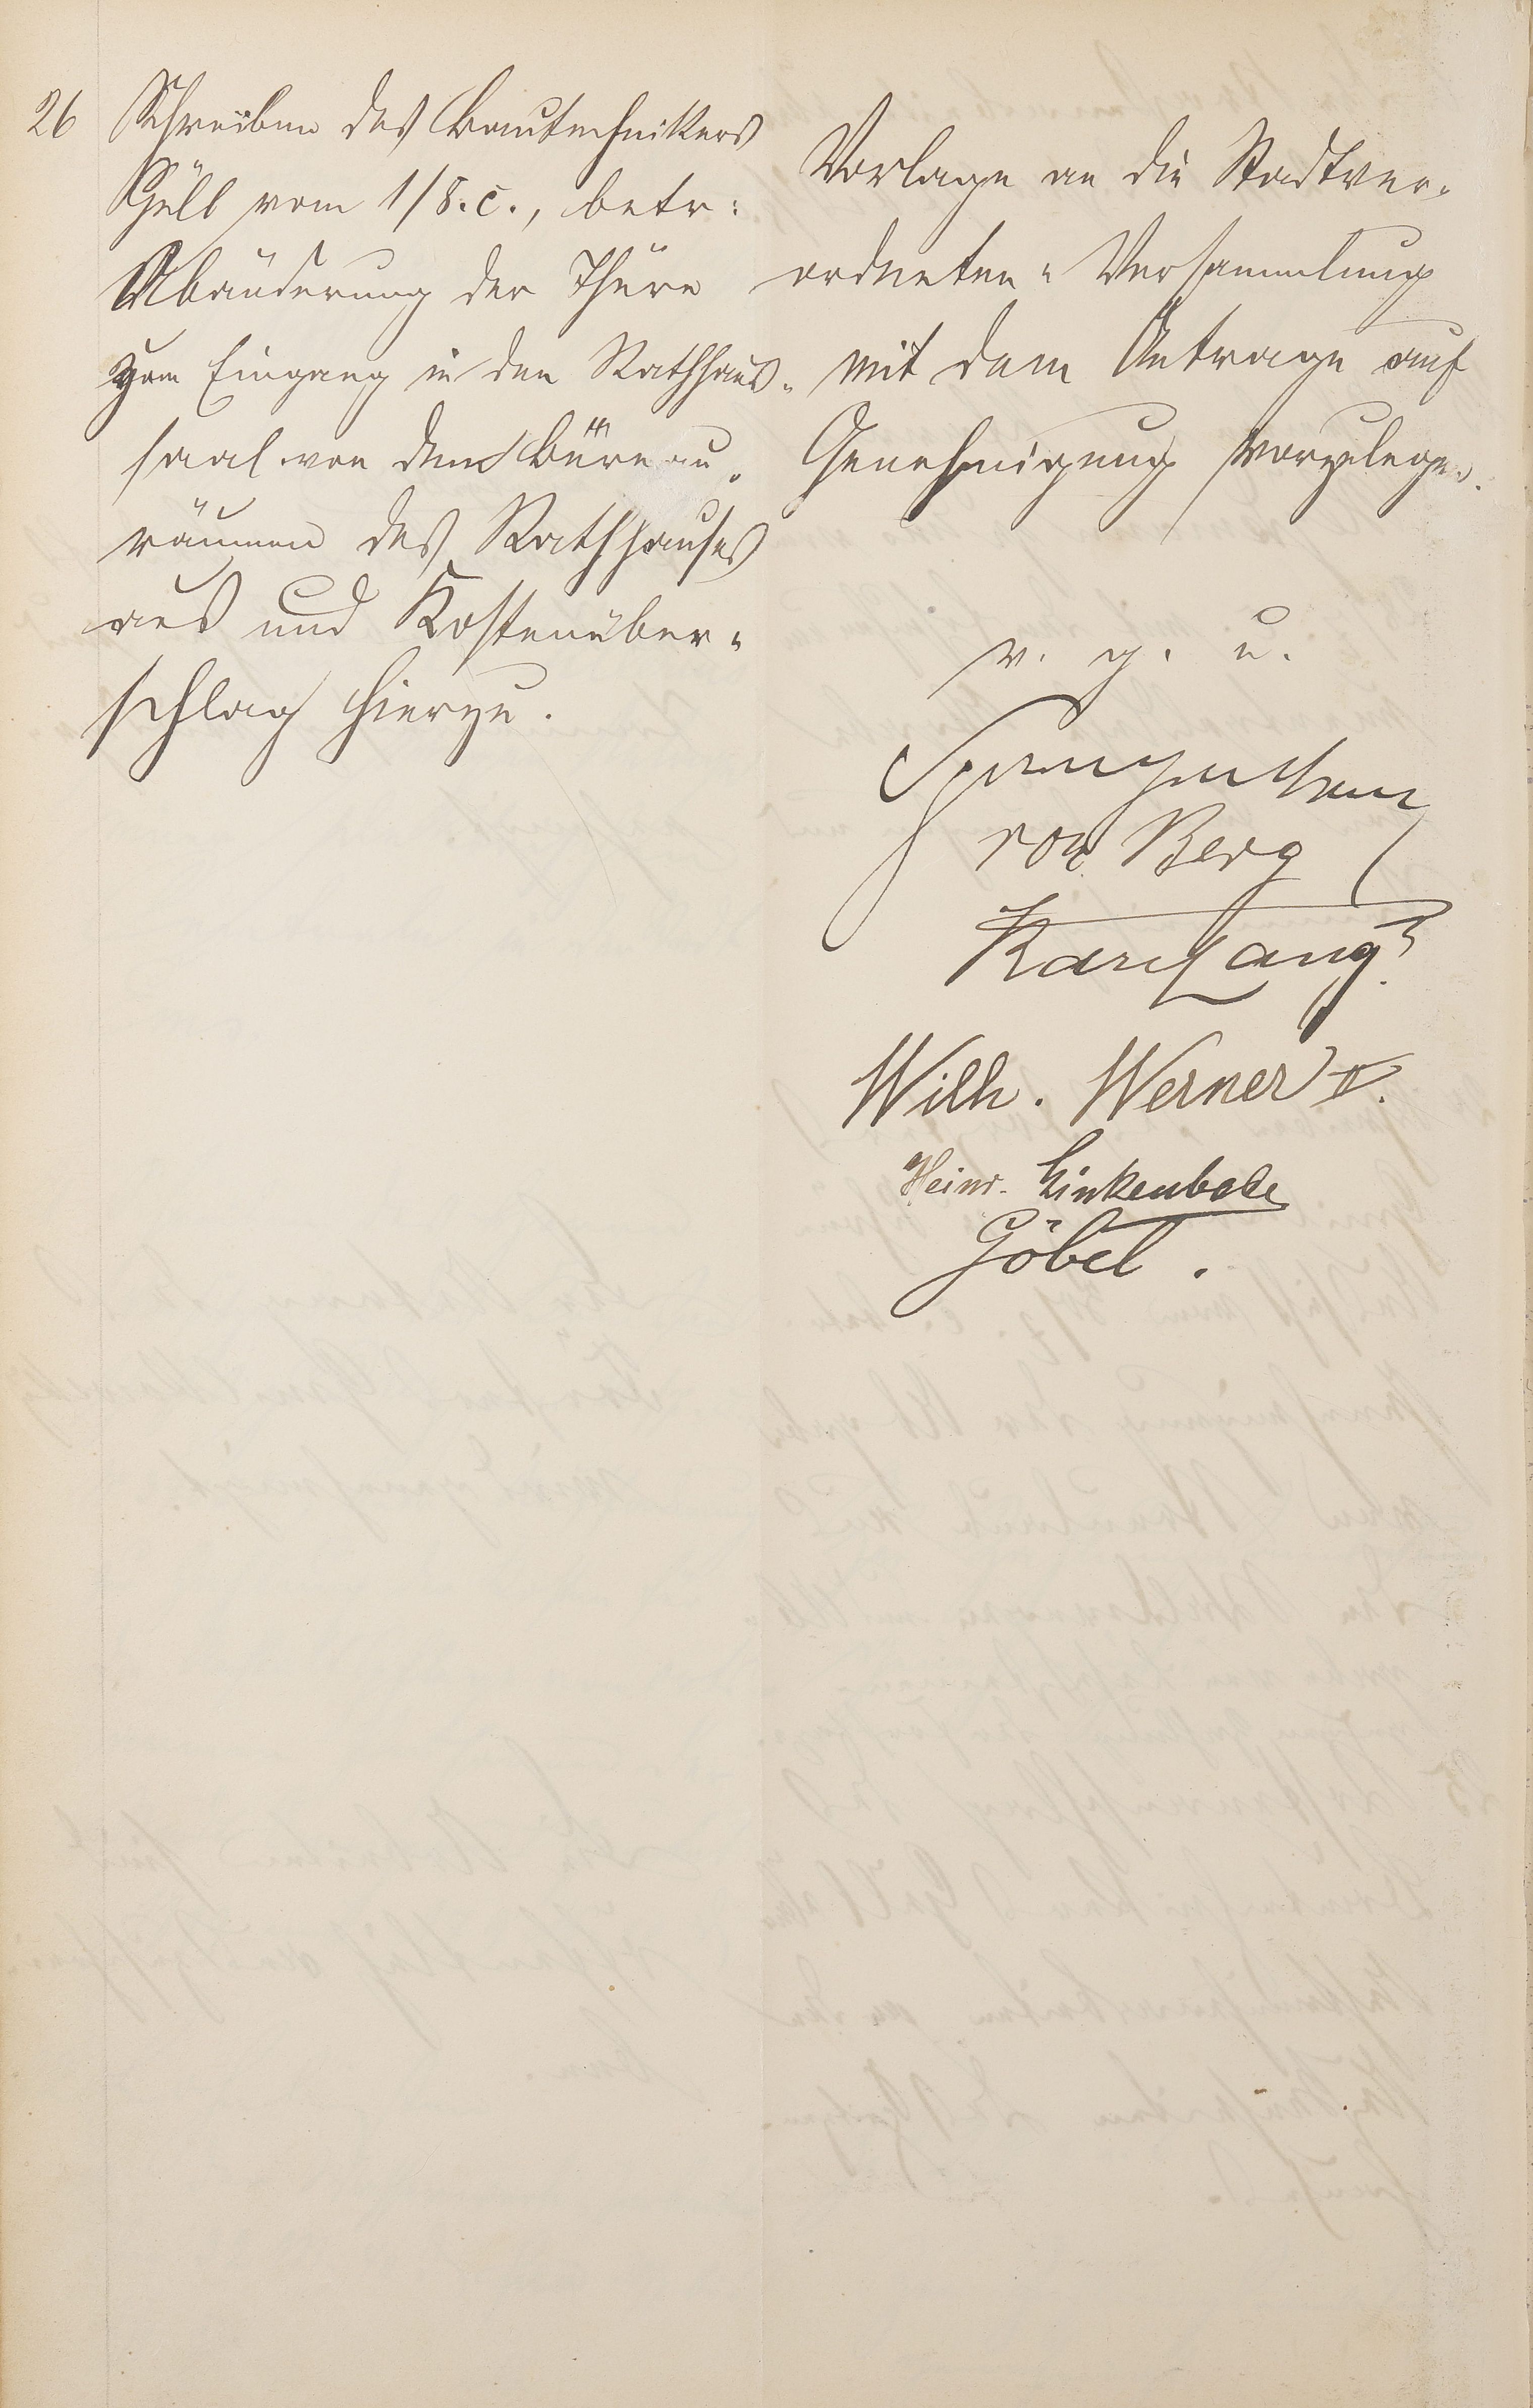 26 Schreiben des Bautechnikers
Güll vom 1/8. c., betr:
Abänderung der Thüre
zum Eingang in den Rathhaus-
saal von den Büreau-
räumen des Rathhauses
aus und Kostenüber-
schlag hierzu.
Vorlage an die Stadtver-
ordneten-Versammlung
mit dem Antrage auf
Genehmigung vorzulegen.
v. g. u.
von Berg
Karl Lang
Wilh. Werner II.
Heinr. Linkenbach
Göbel.